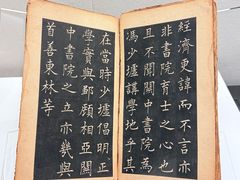 經濟更諱而不言亦
非書院育士之心也
且不聞關中書院為
馮少墟講學地乎其
在當時少墟倡明正
學實與鄒顧相亞關
中書院之立亦幾與
首善東林等